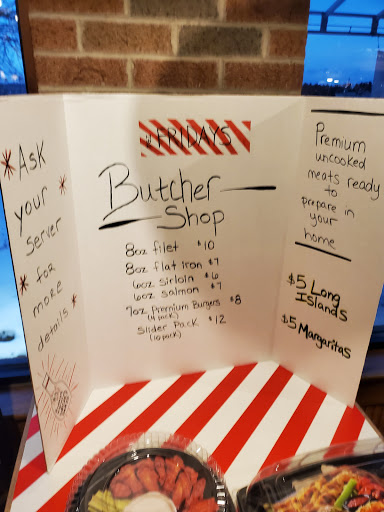 *Ask
your *
Server
* for
more *
details
FRIDAYS
Butcher
Shop
8oz filet $10
8oz flat iron $7
6oz sirloin $6
6oz salmon $7
7oz Premium Burgers $8
(4 pack)
Slider Pack $12
(10 pack)
Premium
uncooked
meats ready
to
prepare in
your
home
$5 Long
Islands
$5 Margaritas